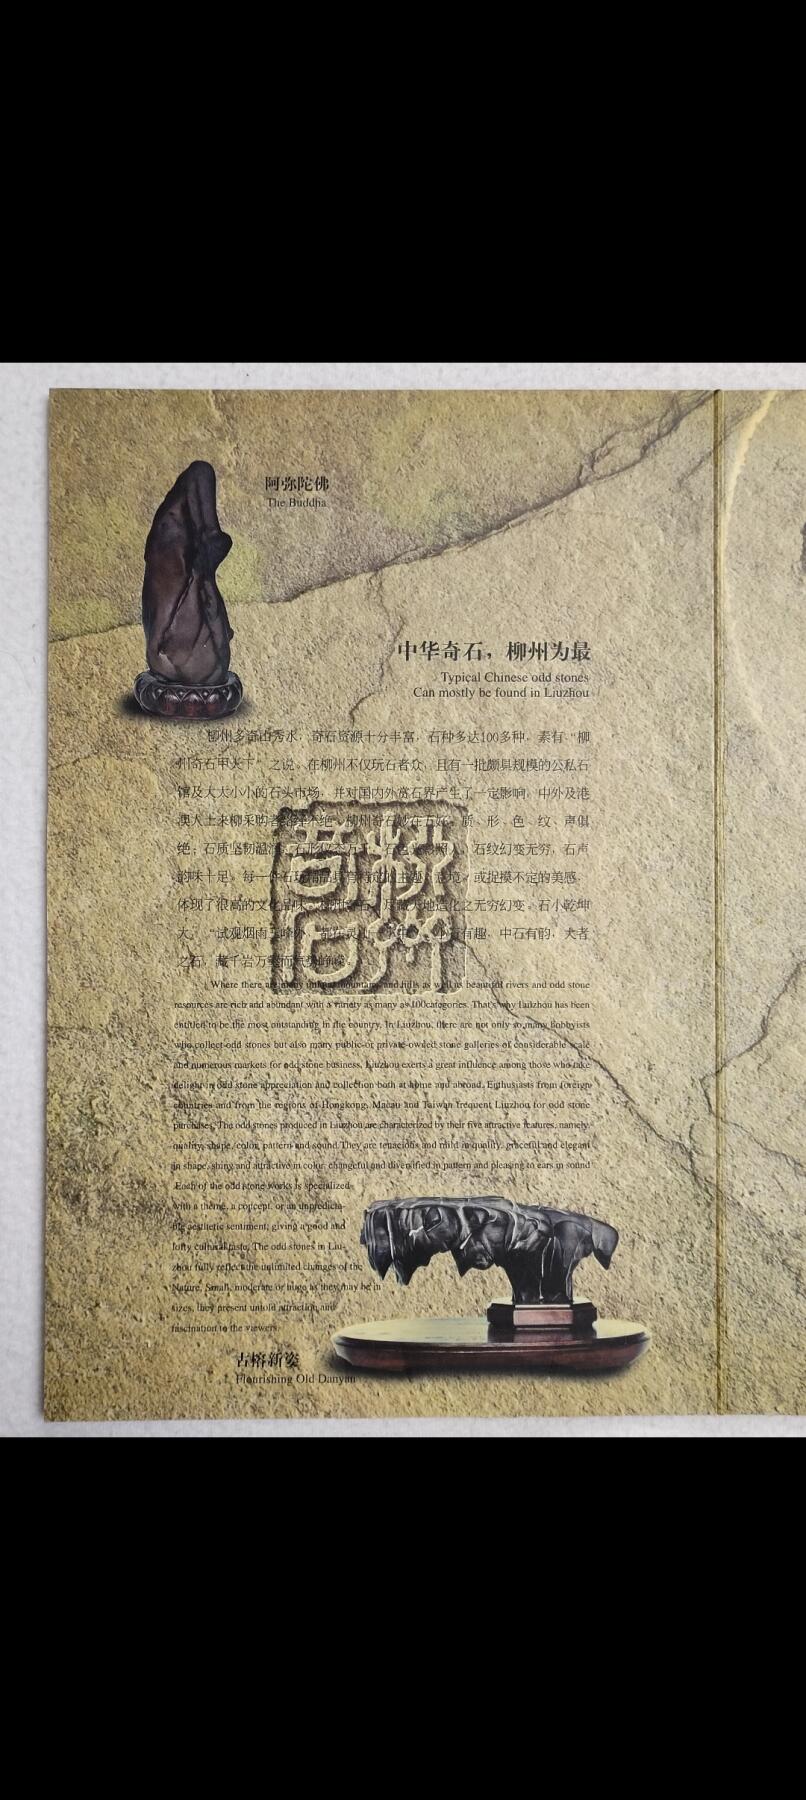 阿弥陀佛
The Buddha
中华奇石，柳州为最
Typical Chinese odd stones
Can mostly be found in Liuzhou
柳州多奇山秀水，奇石资源十分丰富，石种多达100多种，素有“柳
州奇石甲天下”之说。在柳州不仅玩石者众，且有一批颇具规模的公私石
馆及大大小小的石头市场，并对国内外赏石界产生了一定影响，中外及港
澳人士来柳采购者络绎不绝。柳州奇石妙在五好：质、形、色、纹、声俱
绝；石质坚韧温润，石形仪态万千，石色光彩照人，石纹幻变无穷，石声
韵味十足。每一件石玩精品具有特定的主题、意境，或捉摸不定的美感，
体现了很高的文化品味。柳州奇石，尽藏天地造化之无穷幻变。石小乾坤
大，“试观烟雨三峰外，都在灵山一掌中”，小石有趣，中石有韵，大者
之石，藏千岩万壑而气势峥嵘。
柳州
奇石
Where there are many unique mountains and hills as well as beautiful rivers and odd stone
resources are rich and abundant with a variety as many as 100categories. That's why Liuzhou has been
entitled to be the most outstanding in the country. In Liuzhou, there are not only so many hobbyists
who collect odd stones but also many public-or private-owded stone galleries of considerable scale
and numerous markets for odd stone business. Liuzhou exerts a great influence among those who take
delight in odd stone appreciation and collection both at home and abroad. Enthusiasts from foreign
countries and from the regions of Hongkong, Macau and Taiwan frequent Liuzhou for odd stone
purchases. The odd stones produced in Liuzhou are characterized by their five attractive features, namely,
quality, shape, color, pattern and sound.They are tenacious and mild in quality, graceful and elegant
in shape, shing and attractive in color, changeful and diversified in pattern and pleasing to ears in sound
Each of the odd stone works is specialized
with a theme, a concept, or an unpredicta-
ble aesthetic sentiment, giving a good and
lofty cultural taste. The odd stones in Liu-
zhou fully reflect the unlimited changes of the
Nature. Small, moderate or hugo as they may be in
sizes, they present untold attraction and
fascination to the viewers.
古榕新姿
Flourishing Old Danyan